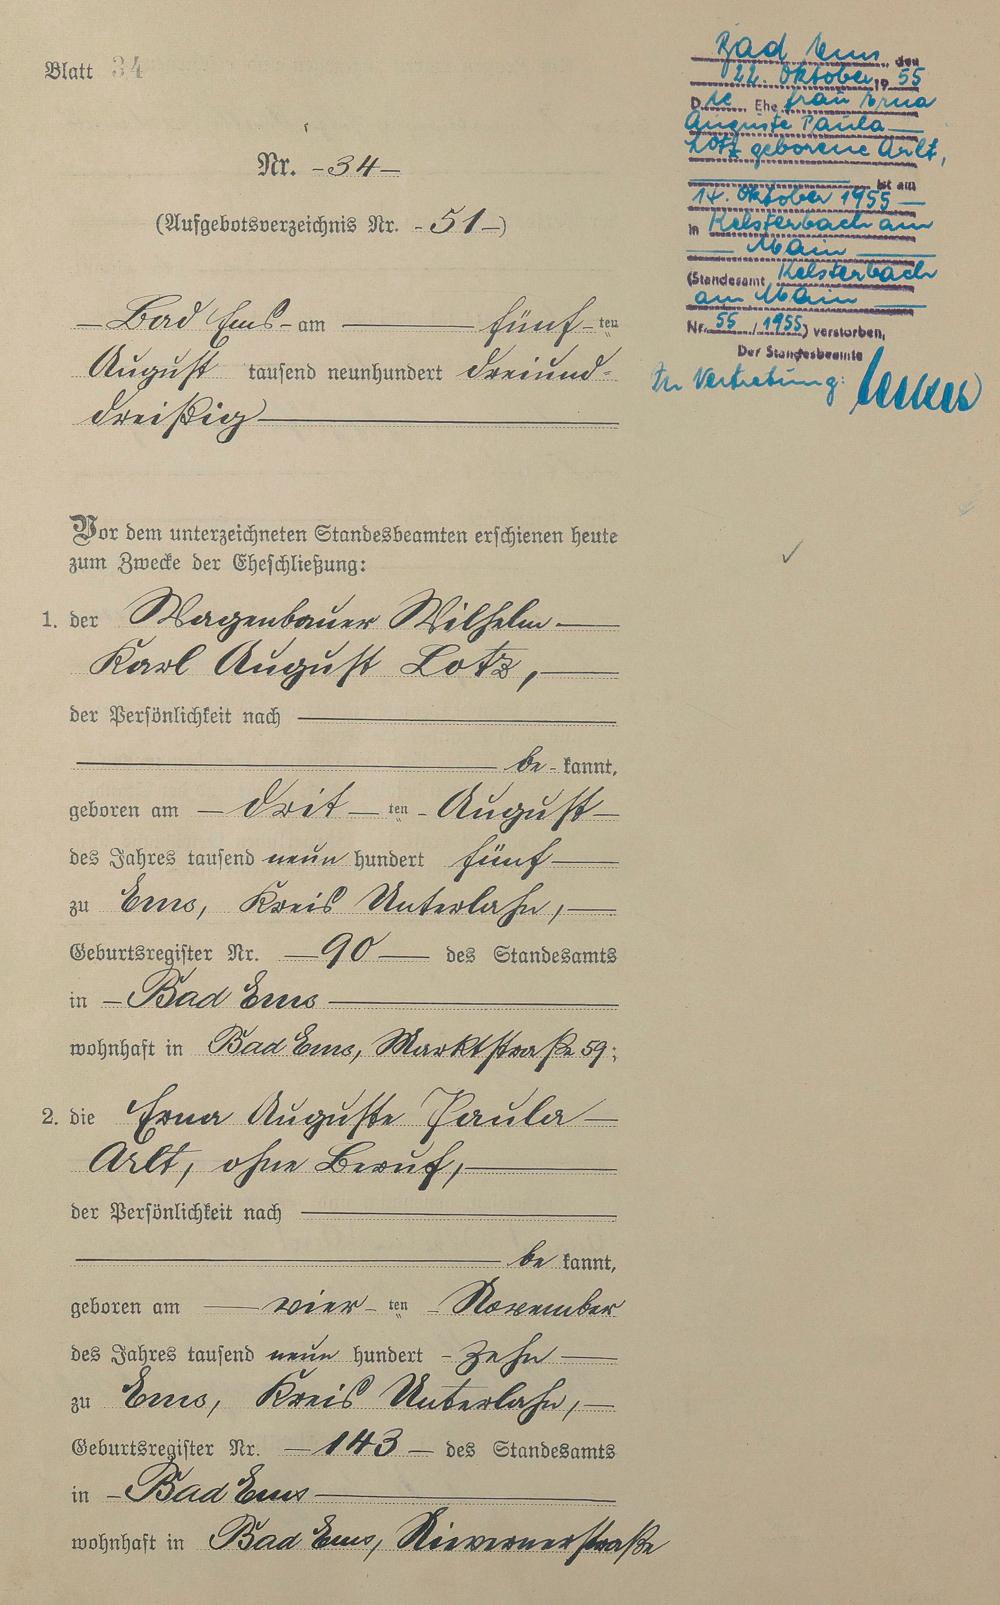 Blatt 34
Nr. -34-
(Aufgebotsverzeichnis Nr. - 51 -)
- Bad Ems - am fünf - ten
August tausend neunhundert dreiund-
dreißig
Vor dem unterzeichneten Standesbeamten erschienen heute
zum Zwecke der Eheschließung:
1. der Wagenbauer Wilhelm
Karl August Lotz,
der Persönlichkeit nach
be - kannt,
geboren am - drit - ten - August -
des Jahres tausend neun hundert fünf
zu Ems, Kreis Unterlahn,
Geburtsregister Nr. - 90 - des Standesamts
in - Bad Ems
wohnhaft in Bad Ems, Marktstraße 59;
2. die Erna Auguste Paula -
Arlt, ohne Beruf,
der Persönlichkeit nach
be kannt,
geboren am - vier - ten - November
des Jahres tausend neun hundert - zehn
zu Ems, Kreis Unterlahn,
Geburtsregister Nr. - 143 - des Standesamts
in - Bad Ems
wohnhaft in Bad Ems, Nievernerstraße
Bad Ems, den
22. Oktober 19 55
Die Ehefrau Erna
Auguste Paula
Lotz geborene Arlt,
ist am
14. Oktober 1955
in Kelsterbach am
Main
(Standesamt Kelsterbach
am Main
Nr. 55 / 1955) verstorben,
Der Standesbeamte
In Vertretung: